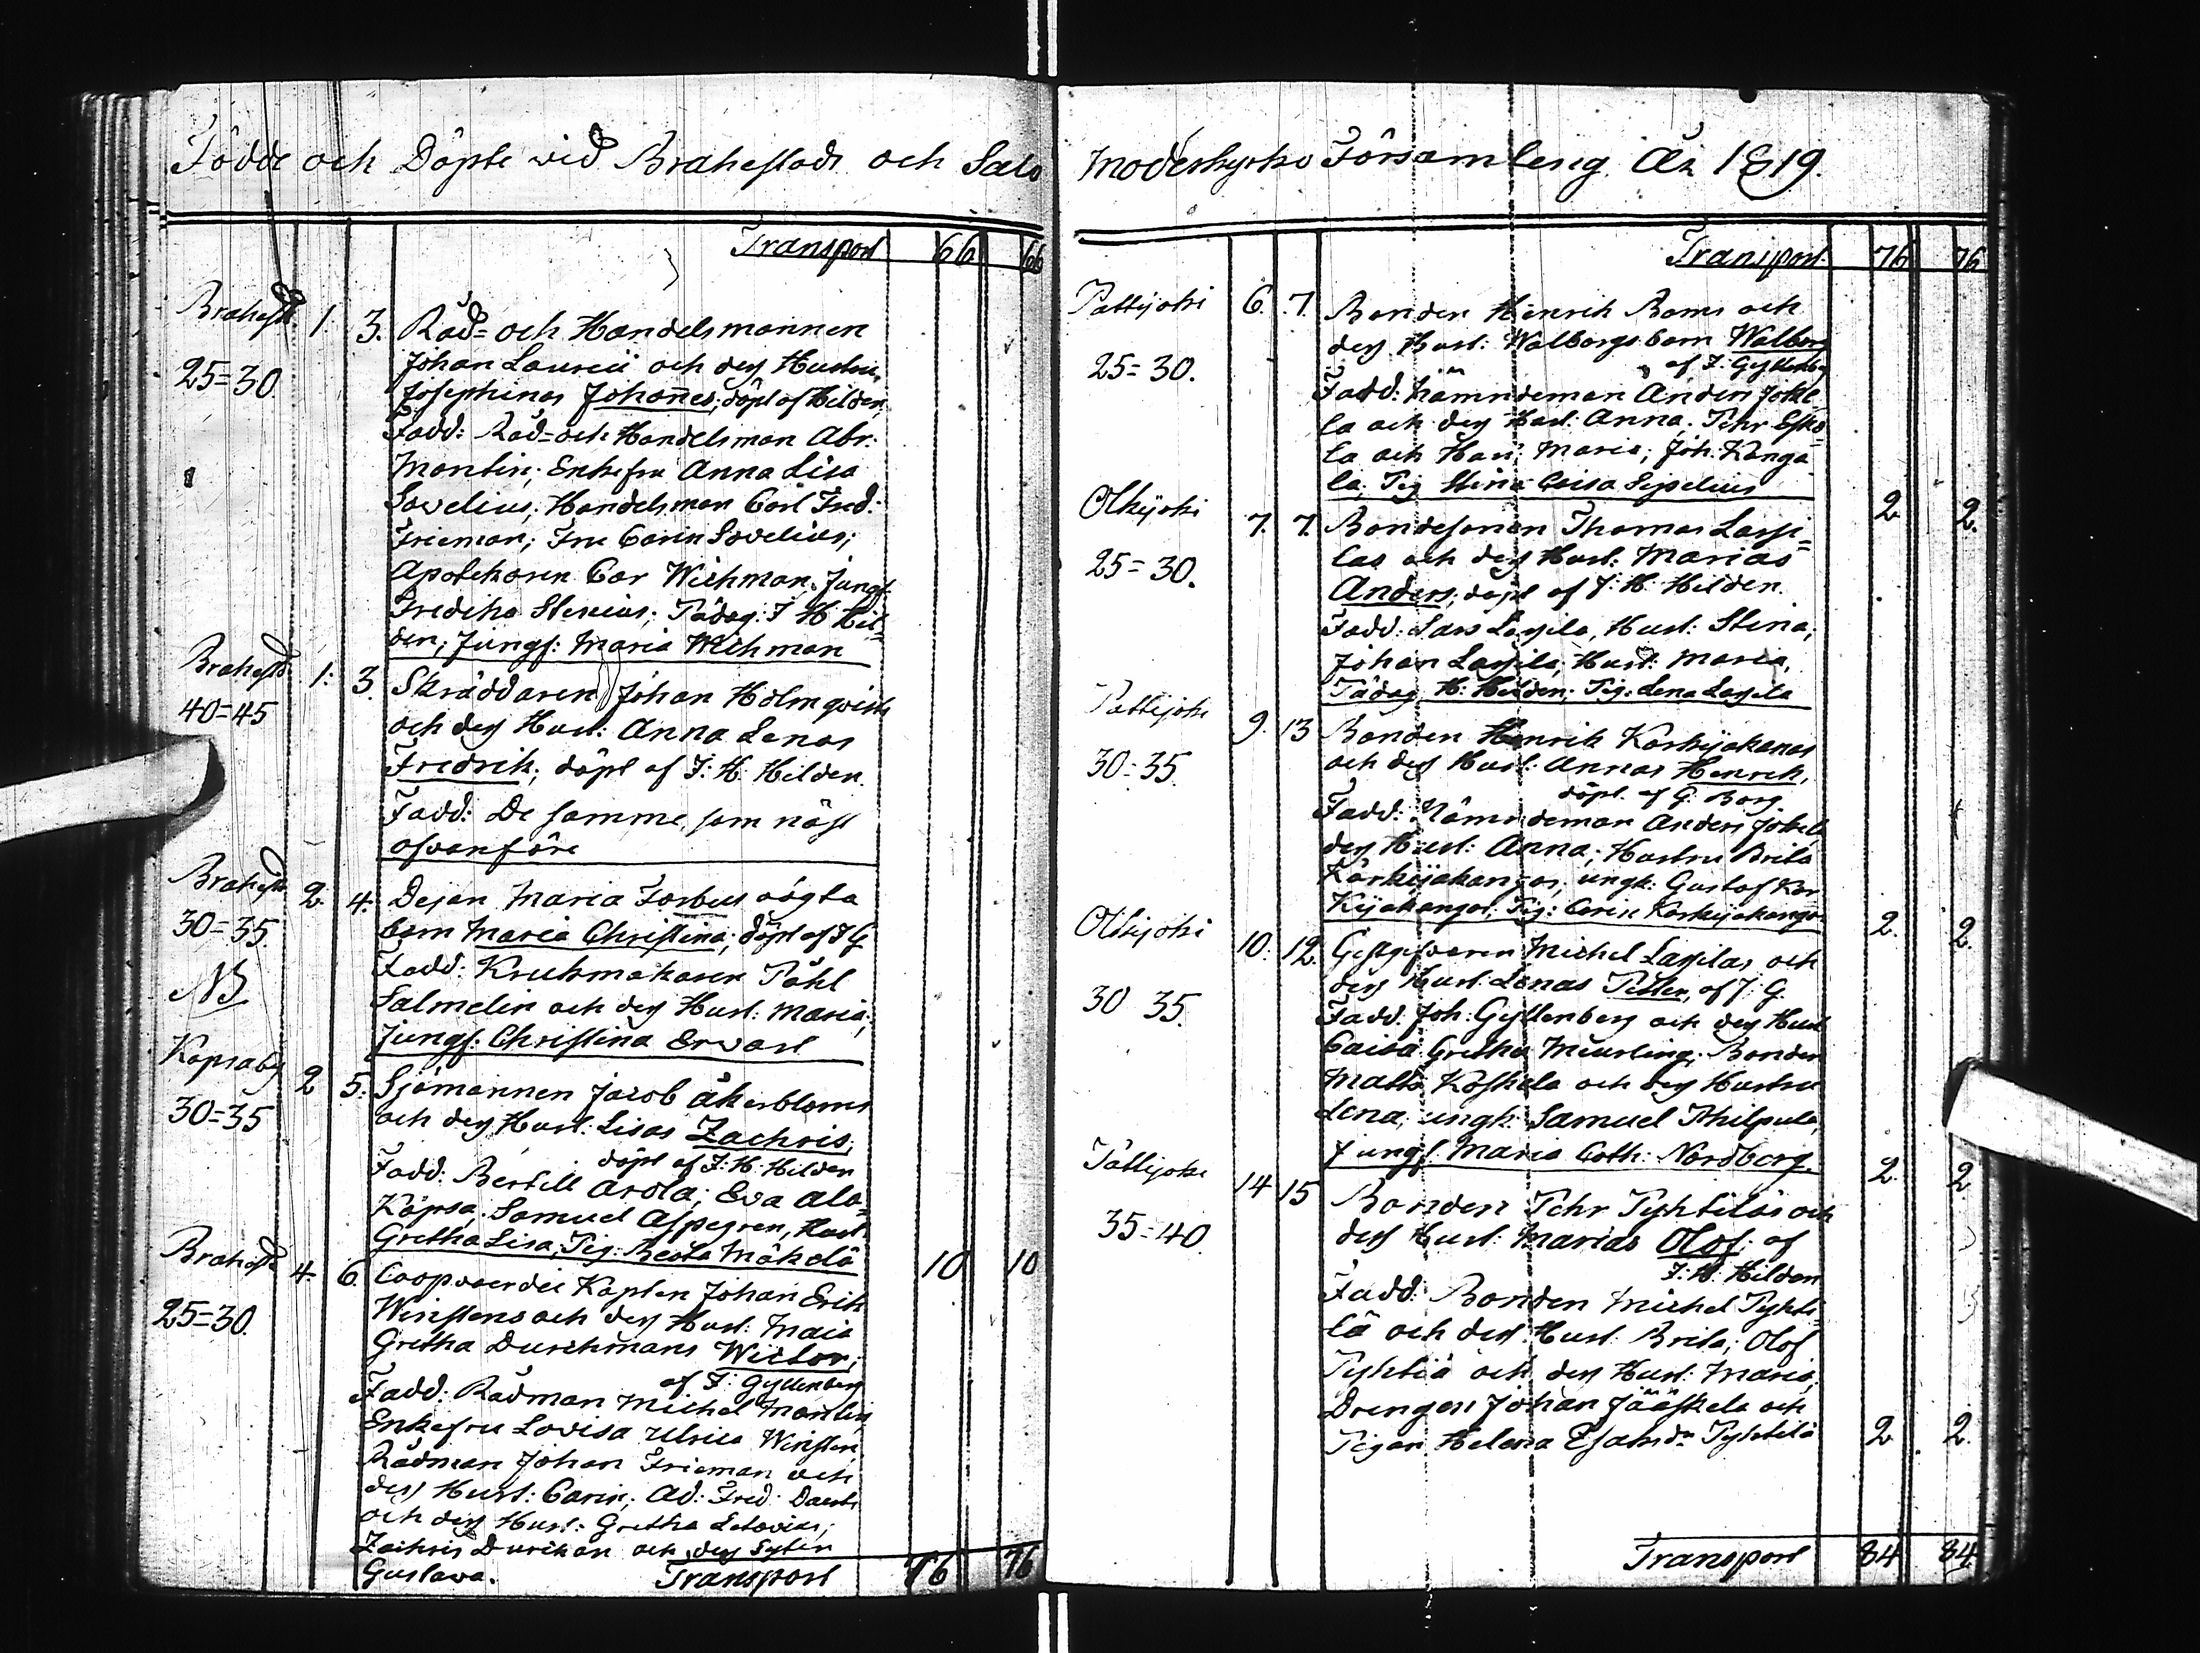 Födde och Döpte vid Brahestads och Salo
Transport 66 66
Brahest. 1. 3. Råd= och Handelsmannen
25=30 Johan Laurii och dess Hustru
Josephinas Johannes, döpt af Hilden
Fadd: Råd=och Handelsman Abr:
Montin; Enkefru Anna Lisa
Sovelius; Handelsman Carl Fred:
Frieman; Fru Carin Sovelius;
Apothekaren Car Wichman, Jungf.
Fredika Stenius; Pädag: J H Hil=
den; Jungf: Maria Wichman
Brahest. 1. 3. Skräddaren Johan Holmqvists
40=45 och dess Hust: Anna Lenas
Fredrik; döpt af J: H: Hilden.
Fadd: De samme som näst
ofvanföre
Brahest. 2. 4. Pejan Maria Forbus oägta
30=35. barn Maria Christina; döpt af J G
NB Fadd: Krukmakaren Påhl
Salmelin och dess Hust: Maria;
Jungf: Christina Ervast
Kopsaby 2 5. Sjömannen Jacob Åkerbloms
30=35 och dess Hust: Lisas Zachris;
döpt af J: H: Hilden
Fadd: Bertill Arola; Eva Ala=
Kopsa; Samuel Aspegren, Hust
Gretha Lisa; Pig: Beata Mäkelä
Brahest. 4. 6. Coopvaerdie Kapten Johan Erik 10 10
25=30. Winstens och dess Hust: Maja
Gretha Durchmans Wictor;
af J: Gyllenberg
Fadd: Rådman Michel Montin
Enkefru Lovisa Ulrica Winsten
Rådman Johan Frieman och
dess Hust: Carin; Ad: Fred:
och dess Hust: Gretha
Zachris och dess Syster
Gustava. Transport 76 76
Moderkyrko Församling År 1819.
Transport. 76 76
Pattijoki 6. 7. Bonden Hinrik Roms och
25=30. dess Hust: Walborgs barn Walborg
af J: Gyllenberg
Fadd: Nämndeman Anders Joke
la och dess Hust: Anna. Pehr Esko=
la och Hust: Maria; Joh. Kanga
la; Pig Stina Caisa Sipelius 2 2.
Olkijoki 7. 7. Bondesonen Thomas Lassi=
25=30. las och dess Hust: Marias
Anders; döpt af J: H: Hilden.
Fadd: Lars Lassila, Hust: Stina;
Johan Lassila; Hust: Maria,
Pädag H: Hilden; Pig: Lena Lassila
Pattijoki 9. 13 Bonden Henrik Korkijakanas
30=35. och dess Hust: Annas Henrik,
döpt. af G: Borg.
Fadd: Nämndeman Anders Jokela
dess Hust: Anna; Hustru Brita
Korkijakangas; ungk: Gustaf Kor
kijakangas; Pig: Carin Korkijakangas 2. 2.
Olkijoki 10. 12. Gestgifvaren Michel Lassilas och
30 35. dess Hust: Lenas Petter, af J: G.
Fadd. Joh: Gyllenberg och dess Hust
Caisa Gretha Meurling; Bonden
Matts Koskela och dess Hustru
Lena; ungk: Samuel Philpula,
Jungf: Maria Cath: Nordberg. 2. 2
Pattijoki 14 15 Bonden Pehr Pyhtiläs och
35=40. dess Hust: Marias Olof; af
J: H: Hilden
Fadd: Bonden Michel Pyhti
lä och dess Hust: Brita; Olof
Pyhtilä och dess Hust: Maria;
Drengen Johan Jääskela och
Pigan Helena Esaiasdr Pyhtilä 2 2.
Transport 84 84